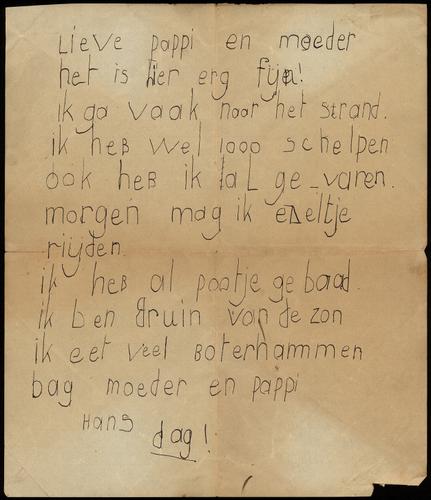 Lieve pappi en moeder
het is hier erg fijn!
ik ga vaak naar het strand.
ik heB wel 1000 schelpen
ook heB ik al ge-varen.
morgen mag ik ezeltje
rijden.
ik heB al pootje gebaad.
ik ben Bruin van de zon
ik eet veel Boterhammen
bag moeder en pappi
Hans
dag!